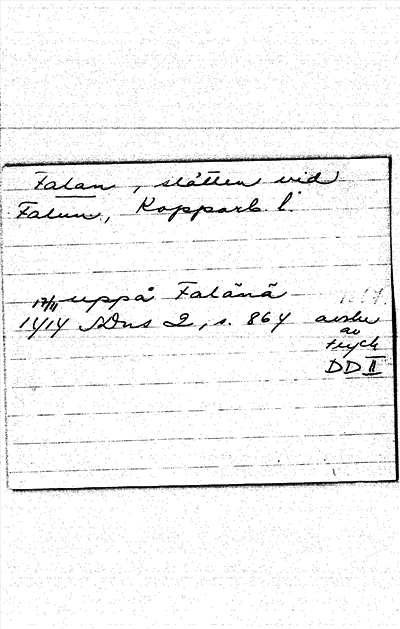 Falan, slätten vid
Falun, Kopparb. l.
17/11 uppå Falänä
1414 SDns 2, s. 864 avskr
av
tryck
DD II